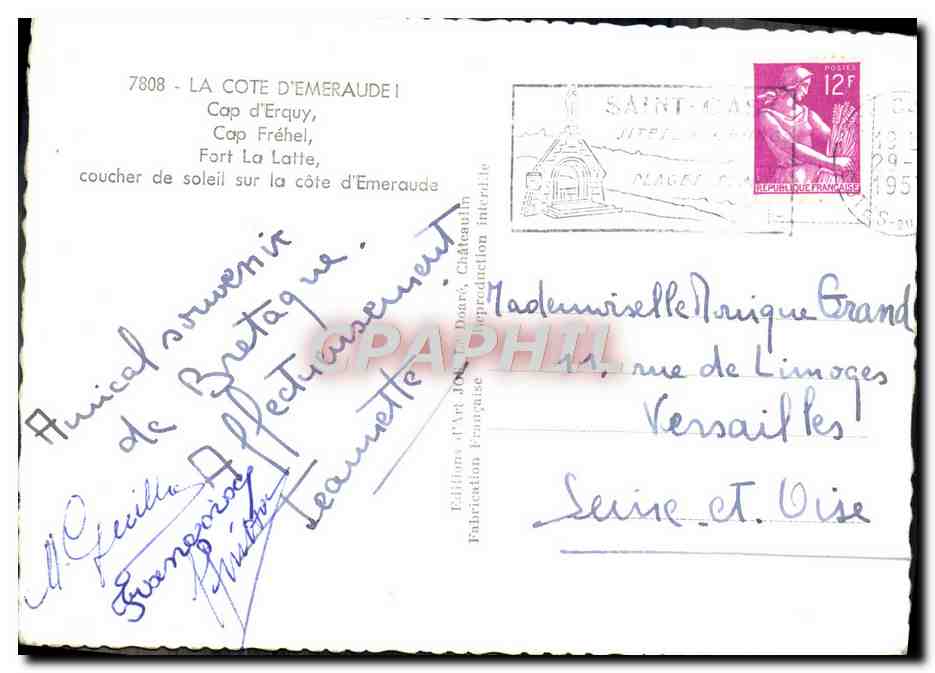 7808 - LA COTE D'EMERAUDE !
Cap d'Erquy,
Cap Fréhel,
Fort La Latte,
coucher de soleil sur la côte d'Emeraude
SAINT-CAS
SITES
PLAGES
POSTES
12F
REPUBLIQUE FRANÇAISE
29-
195
Amical souvenir
de Bretagne.
Affectueusement
Jeannette
M. Guillo
Françoise
Editions d'Art JOS Le Doaré, Châteaulin
Fabrication Française Reproduction interdite
CPAPHIL
Mademoiselle Monique Grand
11, rue de Limoges
Versailles
Seine et Oise